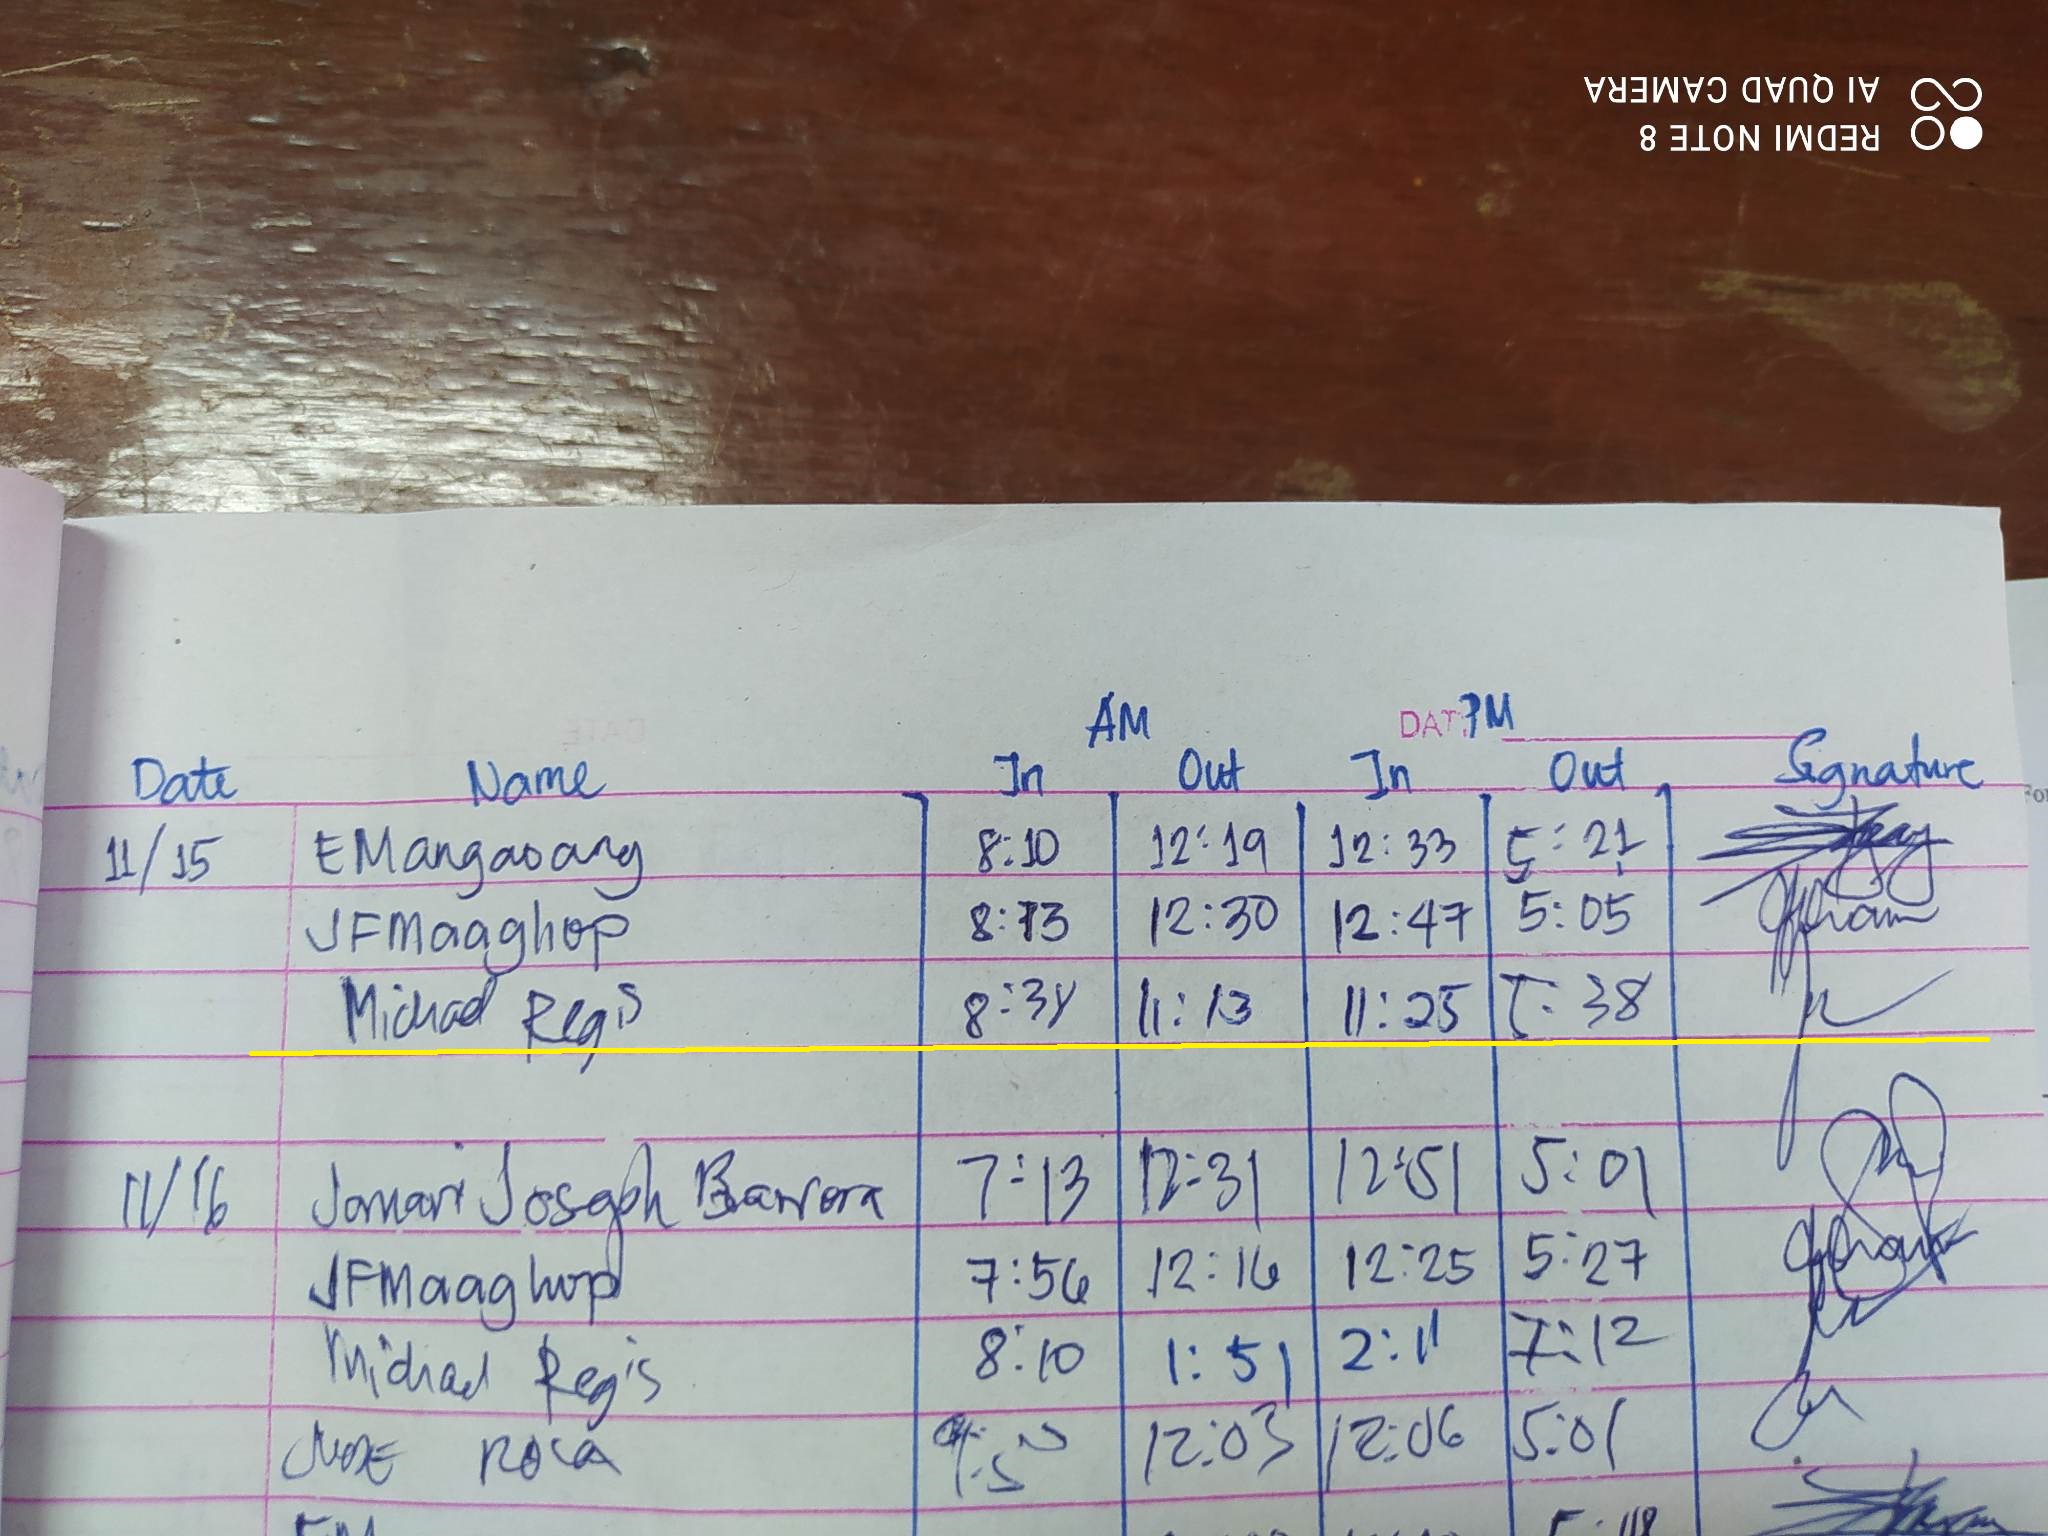 REDMI NOTE 8
AI QUAD CAMERA
AM DAT PM
Date Name In Out In Out Signature
11/15 EMangaoang 8:10 12:19 12:33 5:21
JFMaaghop 8:13 12:30 12:47 5:05
Michael Regis 8:38 11:13 11:25 5:38
11/16 Jomari Joseph Barrora 7:13 12:31 12:51 5:01
JFMaaghop 7:56 12:16 12:25 5:27
Michael Regis 8:10 1:51 2:11 7:12
ROCA 12:03 12:06 5:01